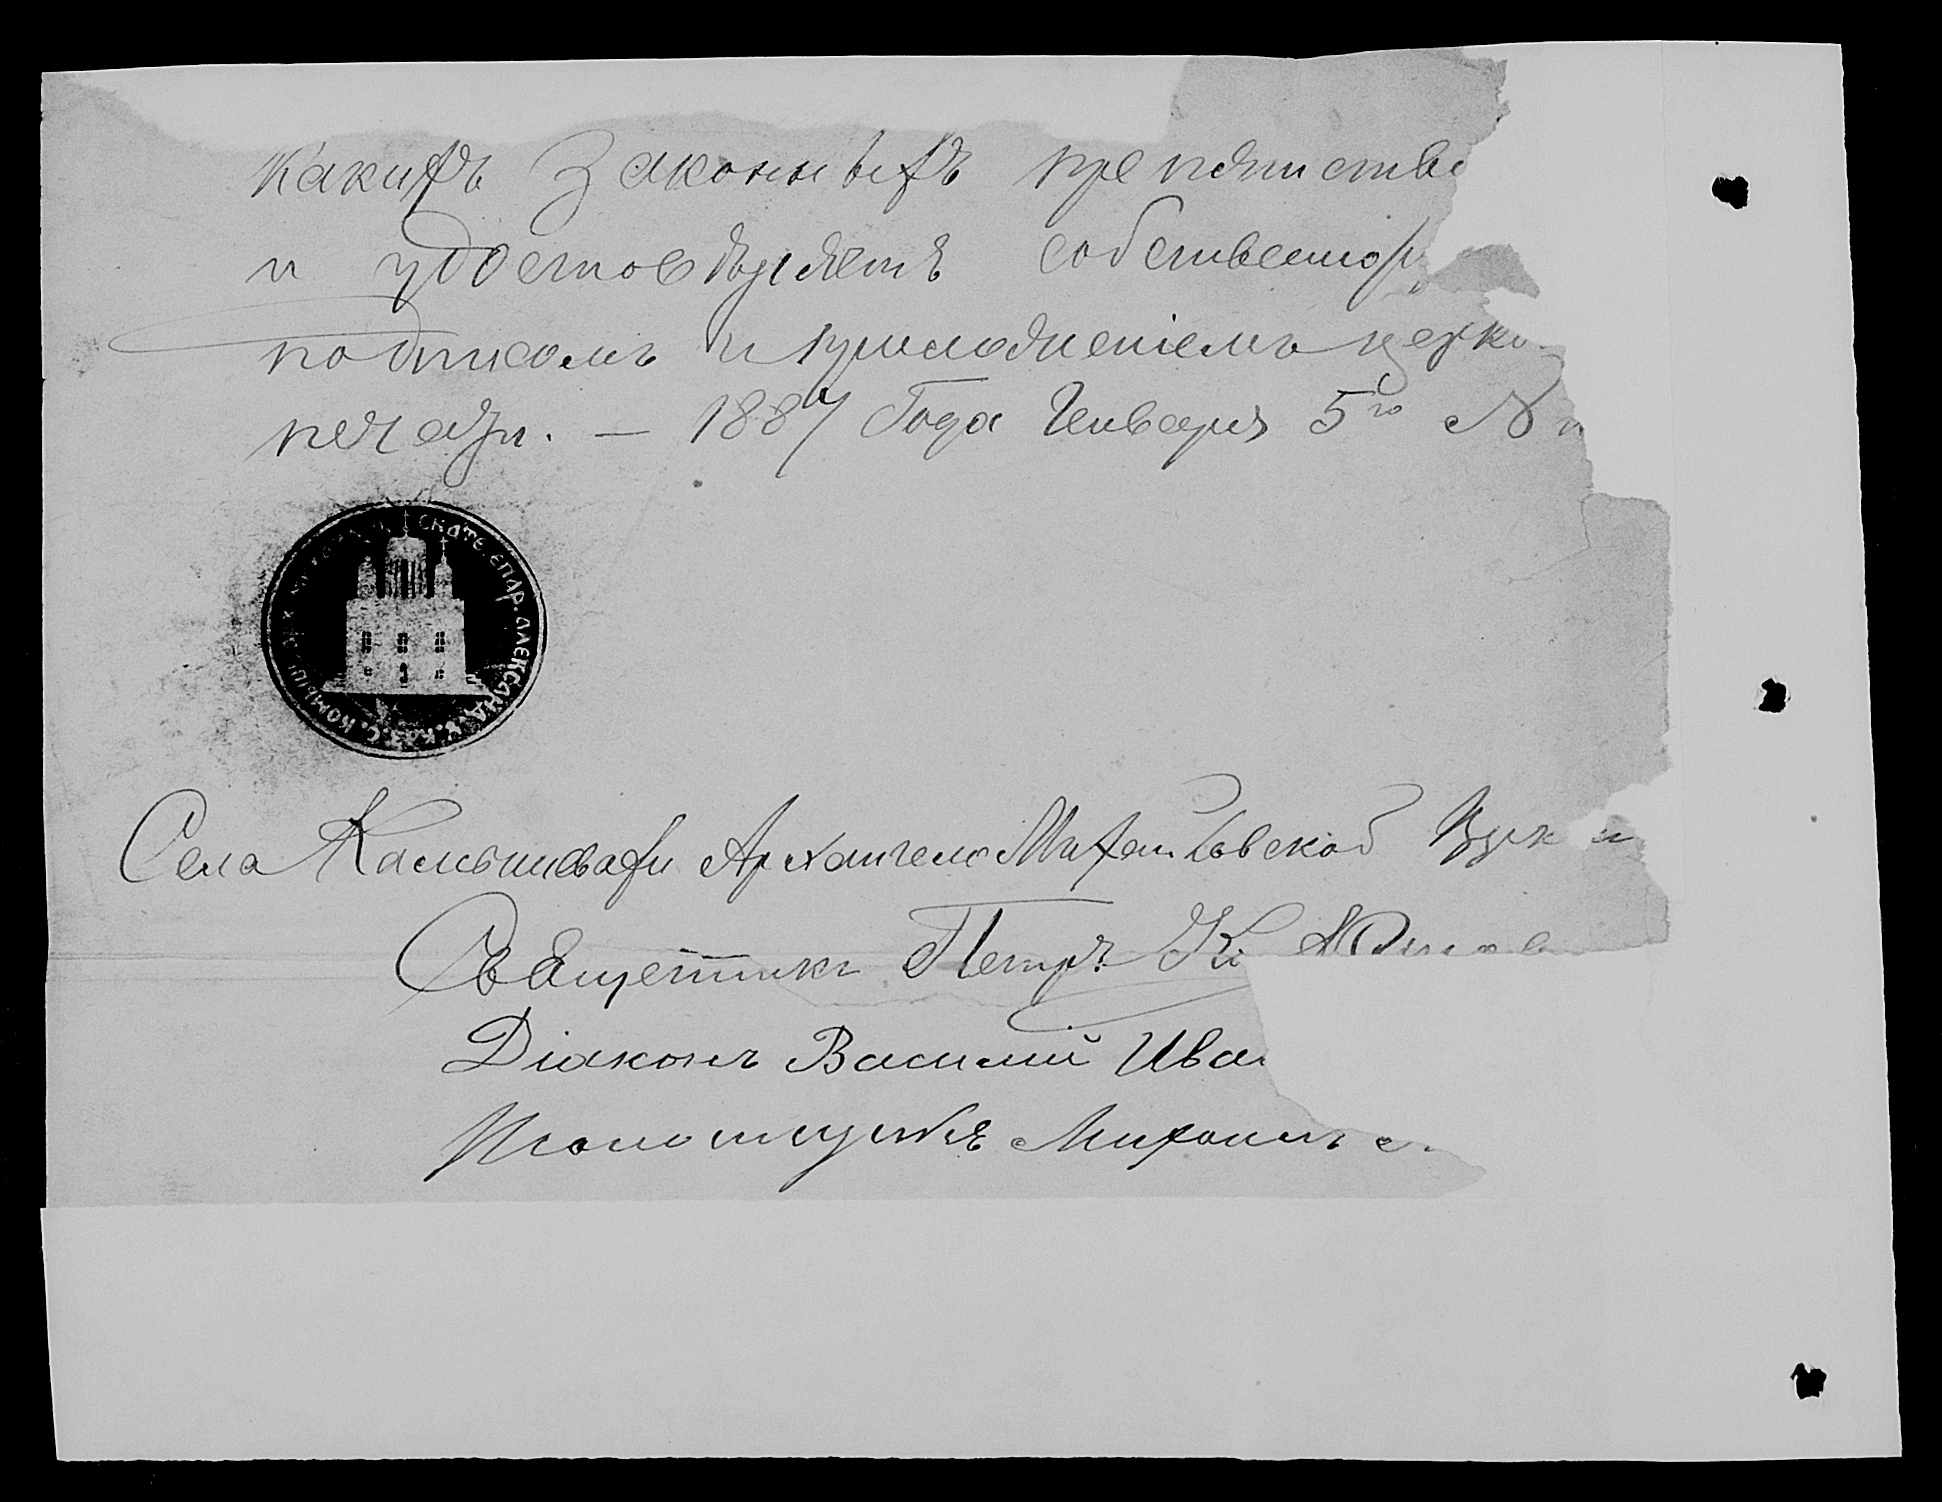 какихъ Законныхъ препятство
и удостовѣряетъ собственнор
подписомъ и приложеніемъ церко
печати. — 1887 Года Генваря 5го №
ЕКАТЕ. ЕПАР. АЛЕКСАНД. У. КАЗ. С. КОМЫШ
Села Камышевахи Архангело Михайловской Церк
Священникъ Петръ
Діаконъ Василій Ива
Псаломщикъ Михаилъ